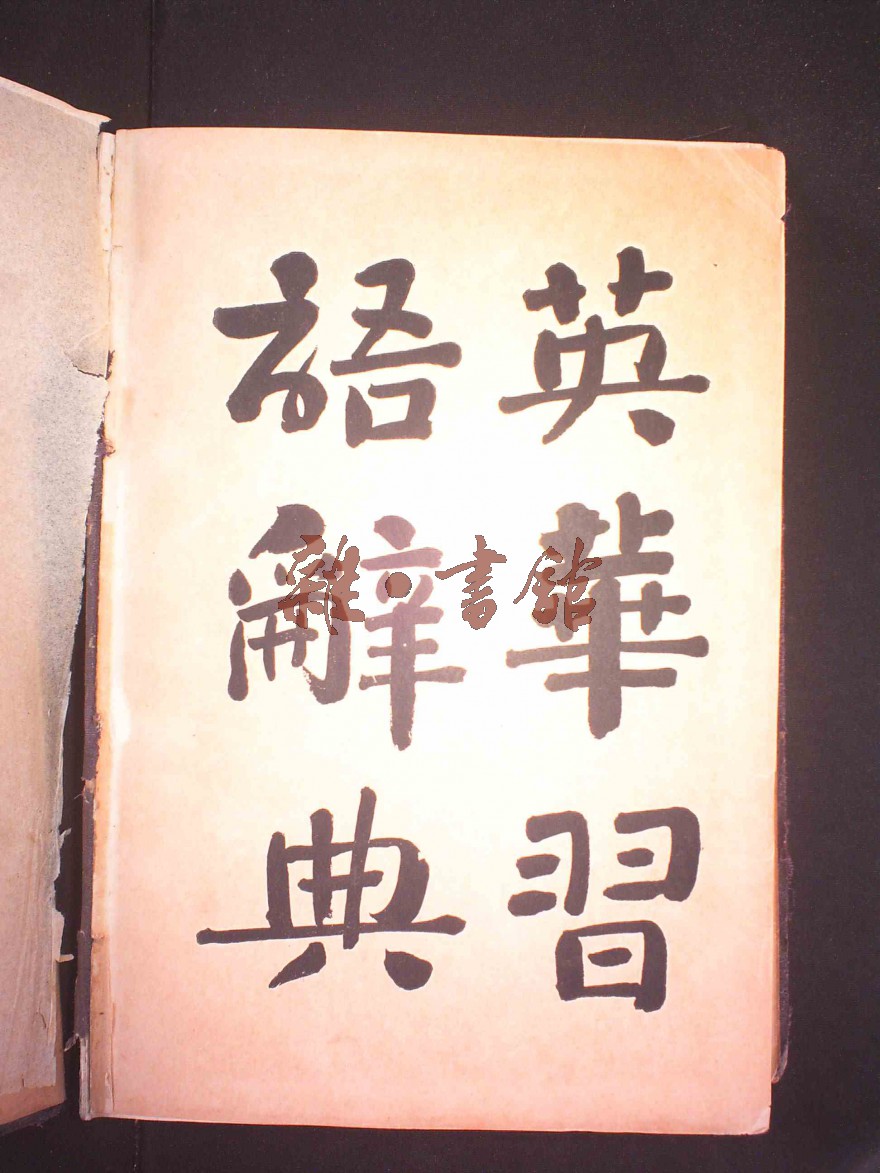 英華習
語辭典
雜·書館